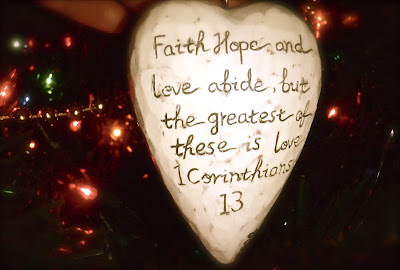 Faith Hope and
love abide, but
the greatest of
these is love
1 Corinthians
13